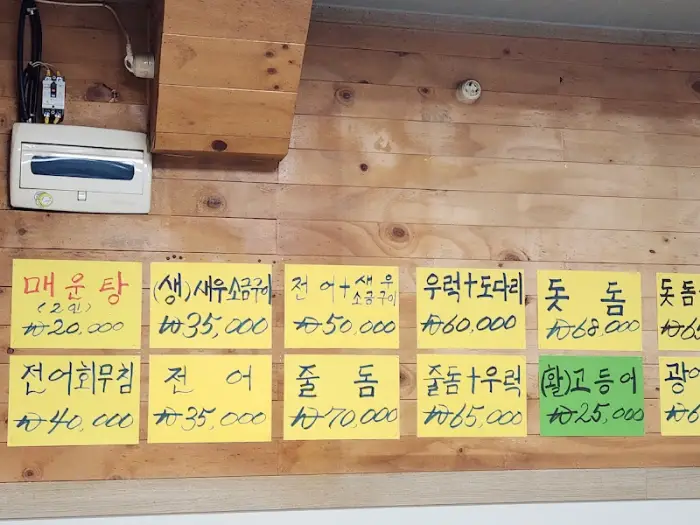 매운탕
(2인)
₩20,000
(생)새우소금구이
₩35,000
전어+새우
소금구이
₩50,000
우럭+도다리
₩60,000
돗돔
₩68,000
돗돔
전어회무침
₩40,000
전어
₩35,000
줄돔
₩70,000
줄돔+우럭
₩65,000
(활)고등어
₩25,000